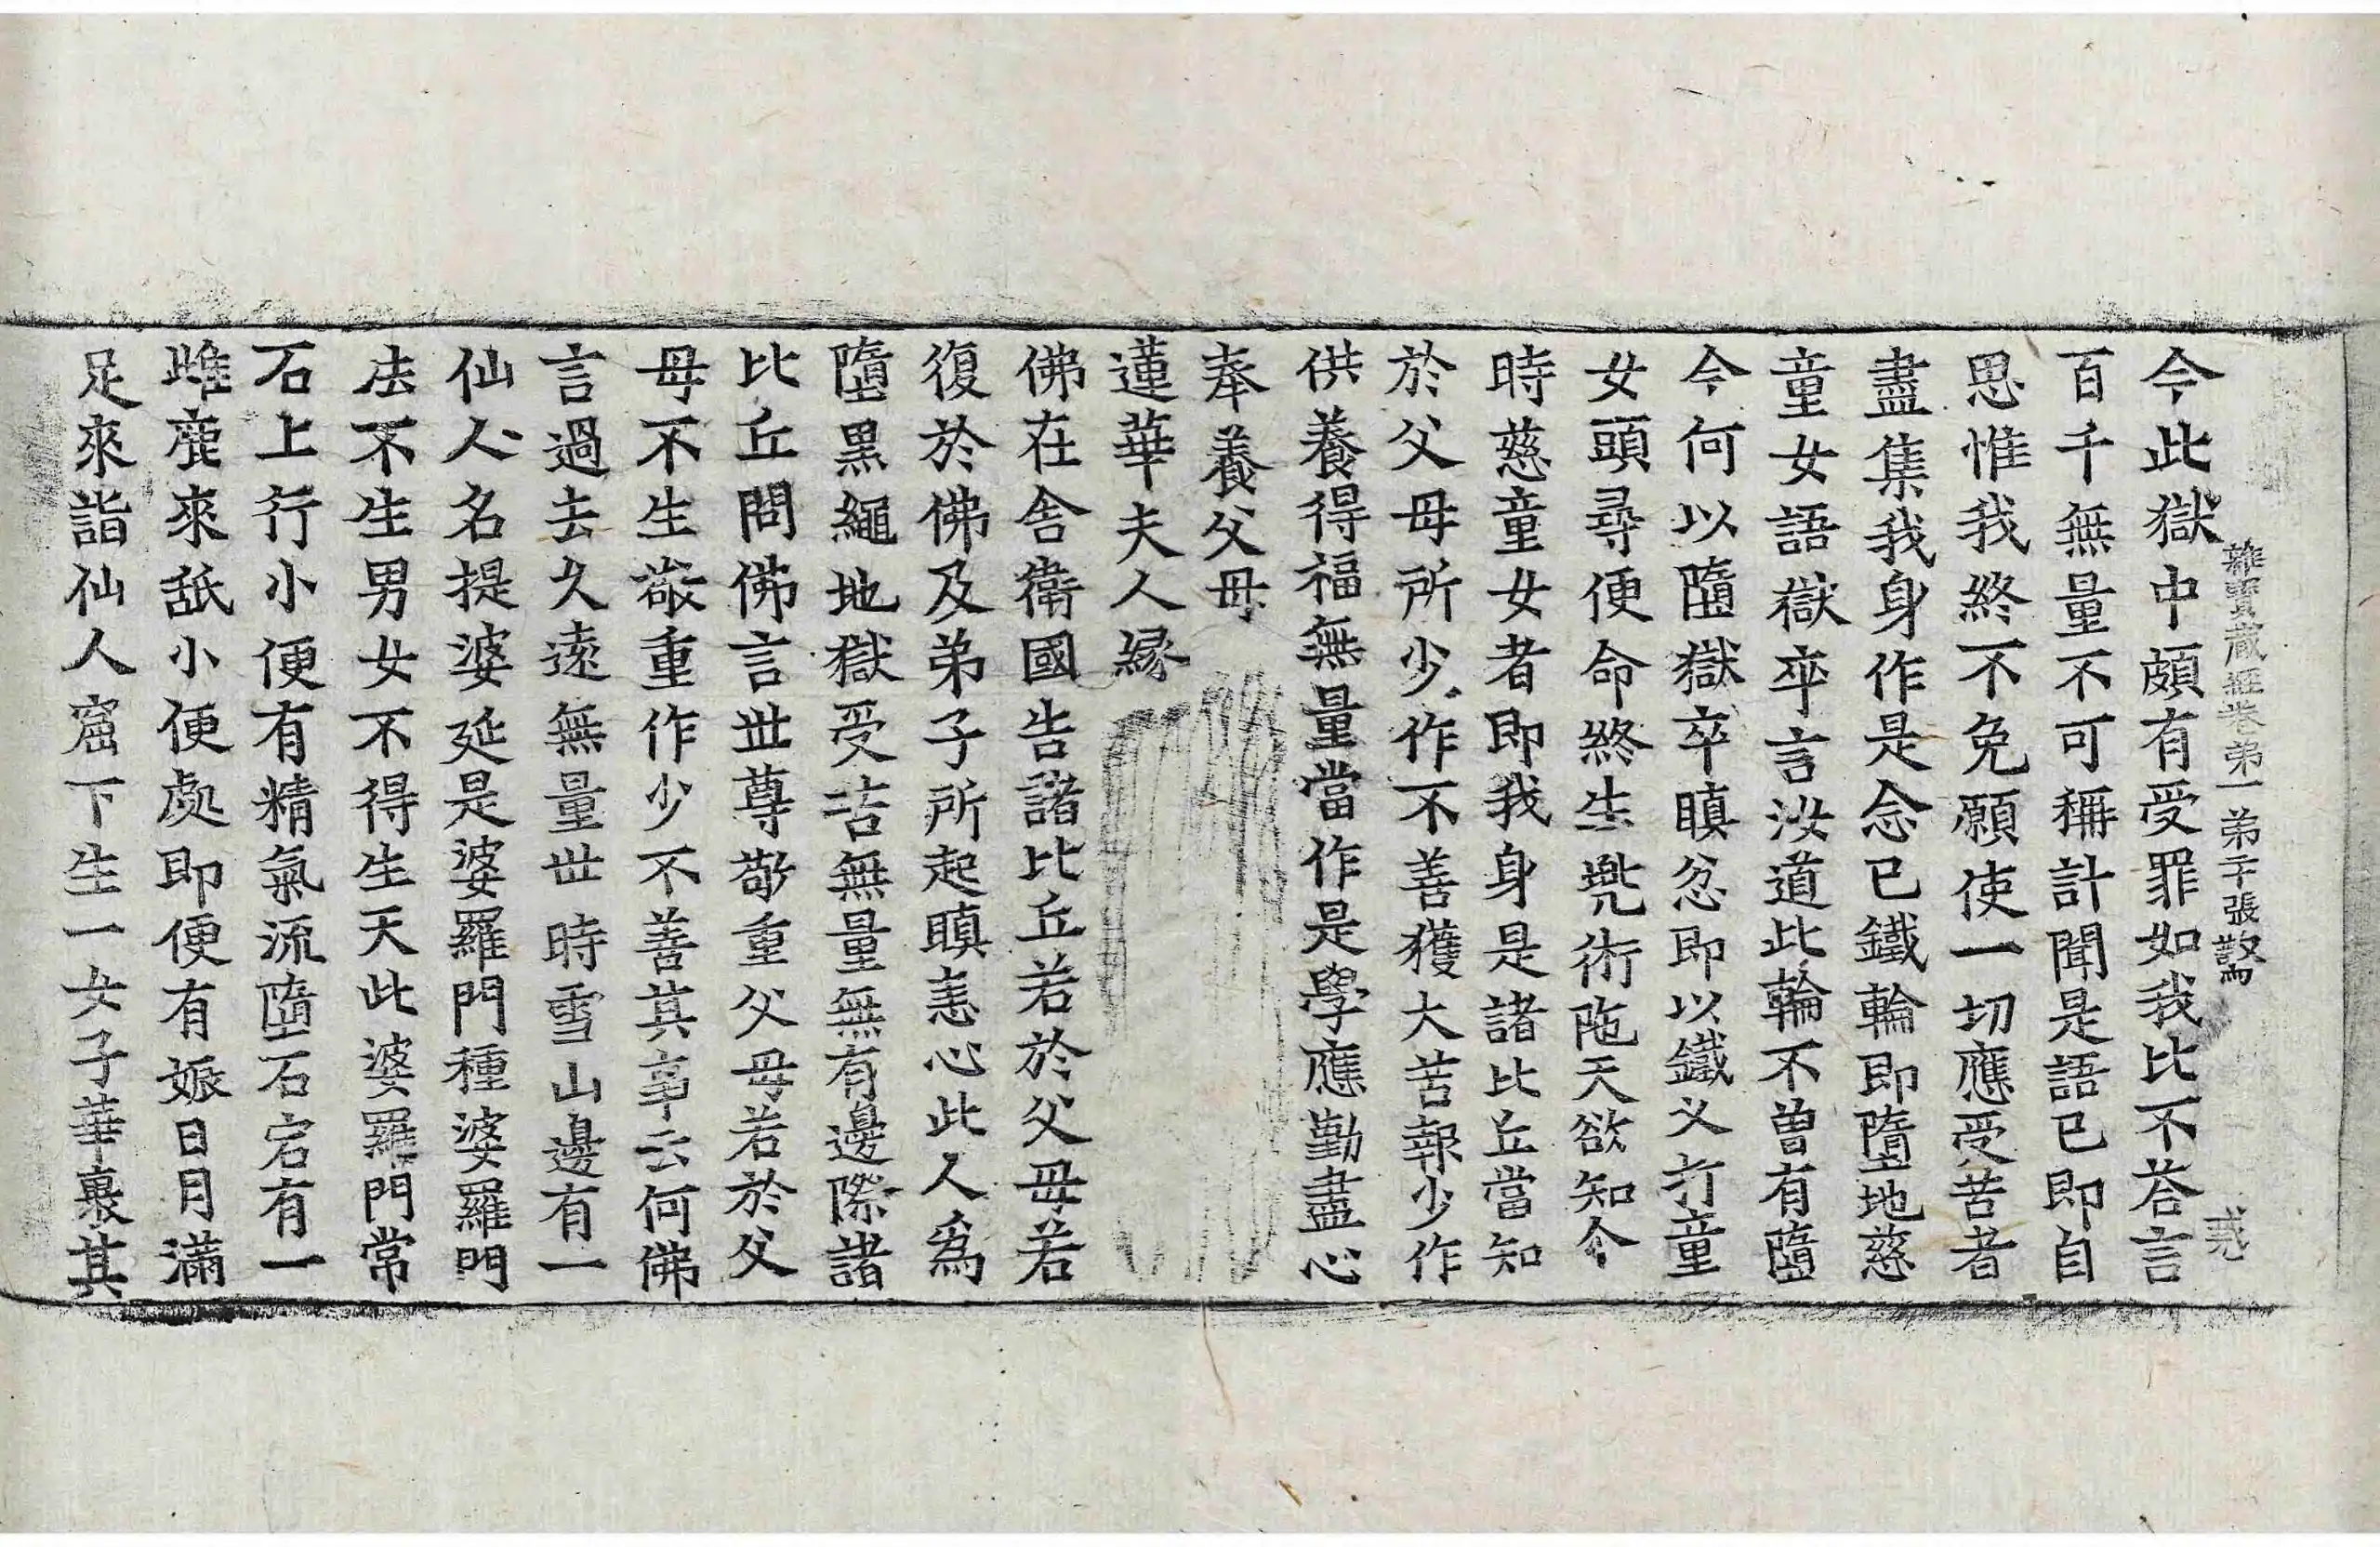 雜寶藏經卷第一 弟子張
今此獄中頗有受罪如我比不荅言
百千無量不可稱計聞是語已即自
思惟我終不免願使一切應受苦者
盡集我身作是念已鐵輪即墮地慈
童女語獄卒言汝道此輪不曾有墮
今何以墮獄卒瞋忿即以鐵叉打童
女頭尋便命終生兜術陁天欲知今
時慈童女者即我身是諸比丘當知
於父母所少作不善獲大苦報少作
供養得福無量當作是學應勤盡心
奉養父母
蓮華夫人緣
佛在舍衛國告諸比丘若於父母若
復於佛及弟子所起瞋恚心此人爲
墮黑繩地獄受苦無量無有邊際諸
比丘問佛言世尊敬重父母若於父
母不生敬重作少不善其事云何佛
言過去久遠無量世時雪山邊有一
仙人名提婆延是婆羅門種婆羅門
法不生男女不得生天此婆羅門常
石上行小便有精氣流墮石宕有一
雌鹿來舐小便處即便有娠日月滿
足來詣仙人窟下生一女子華裹其